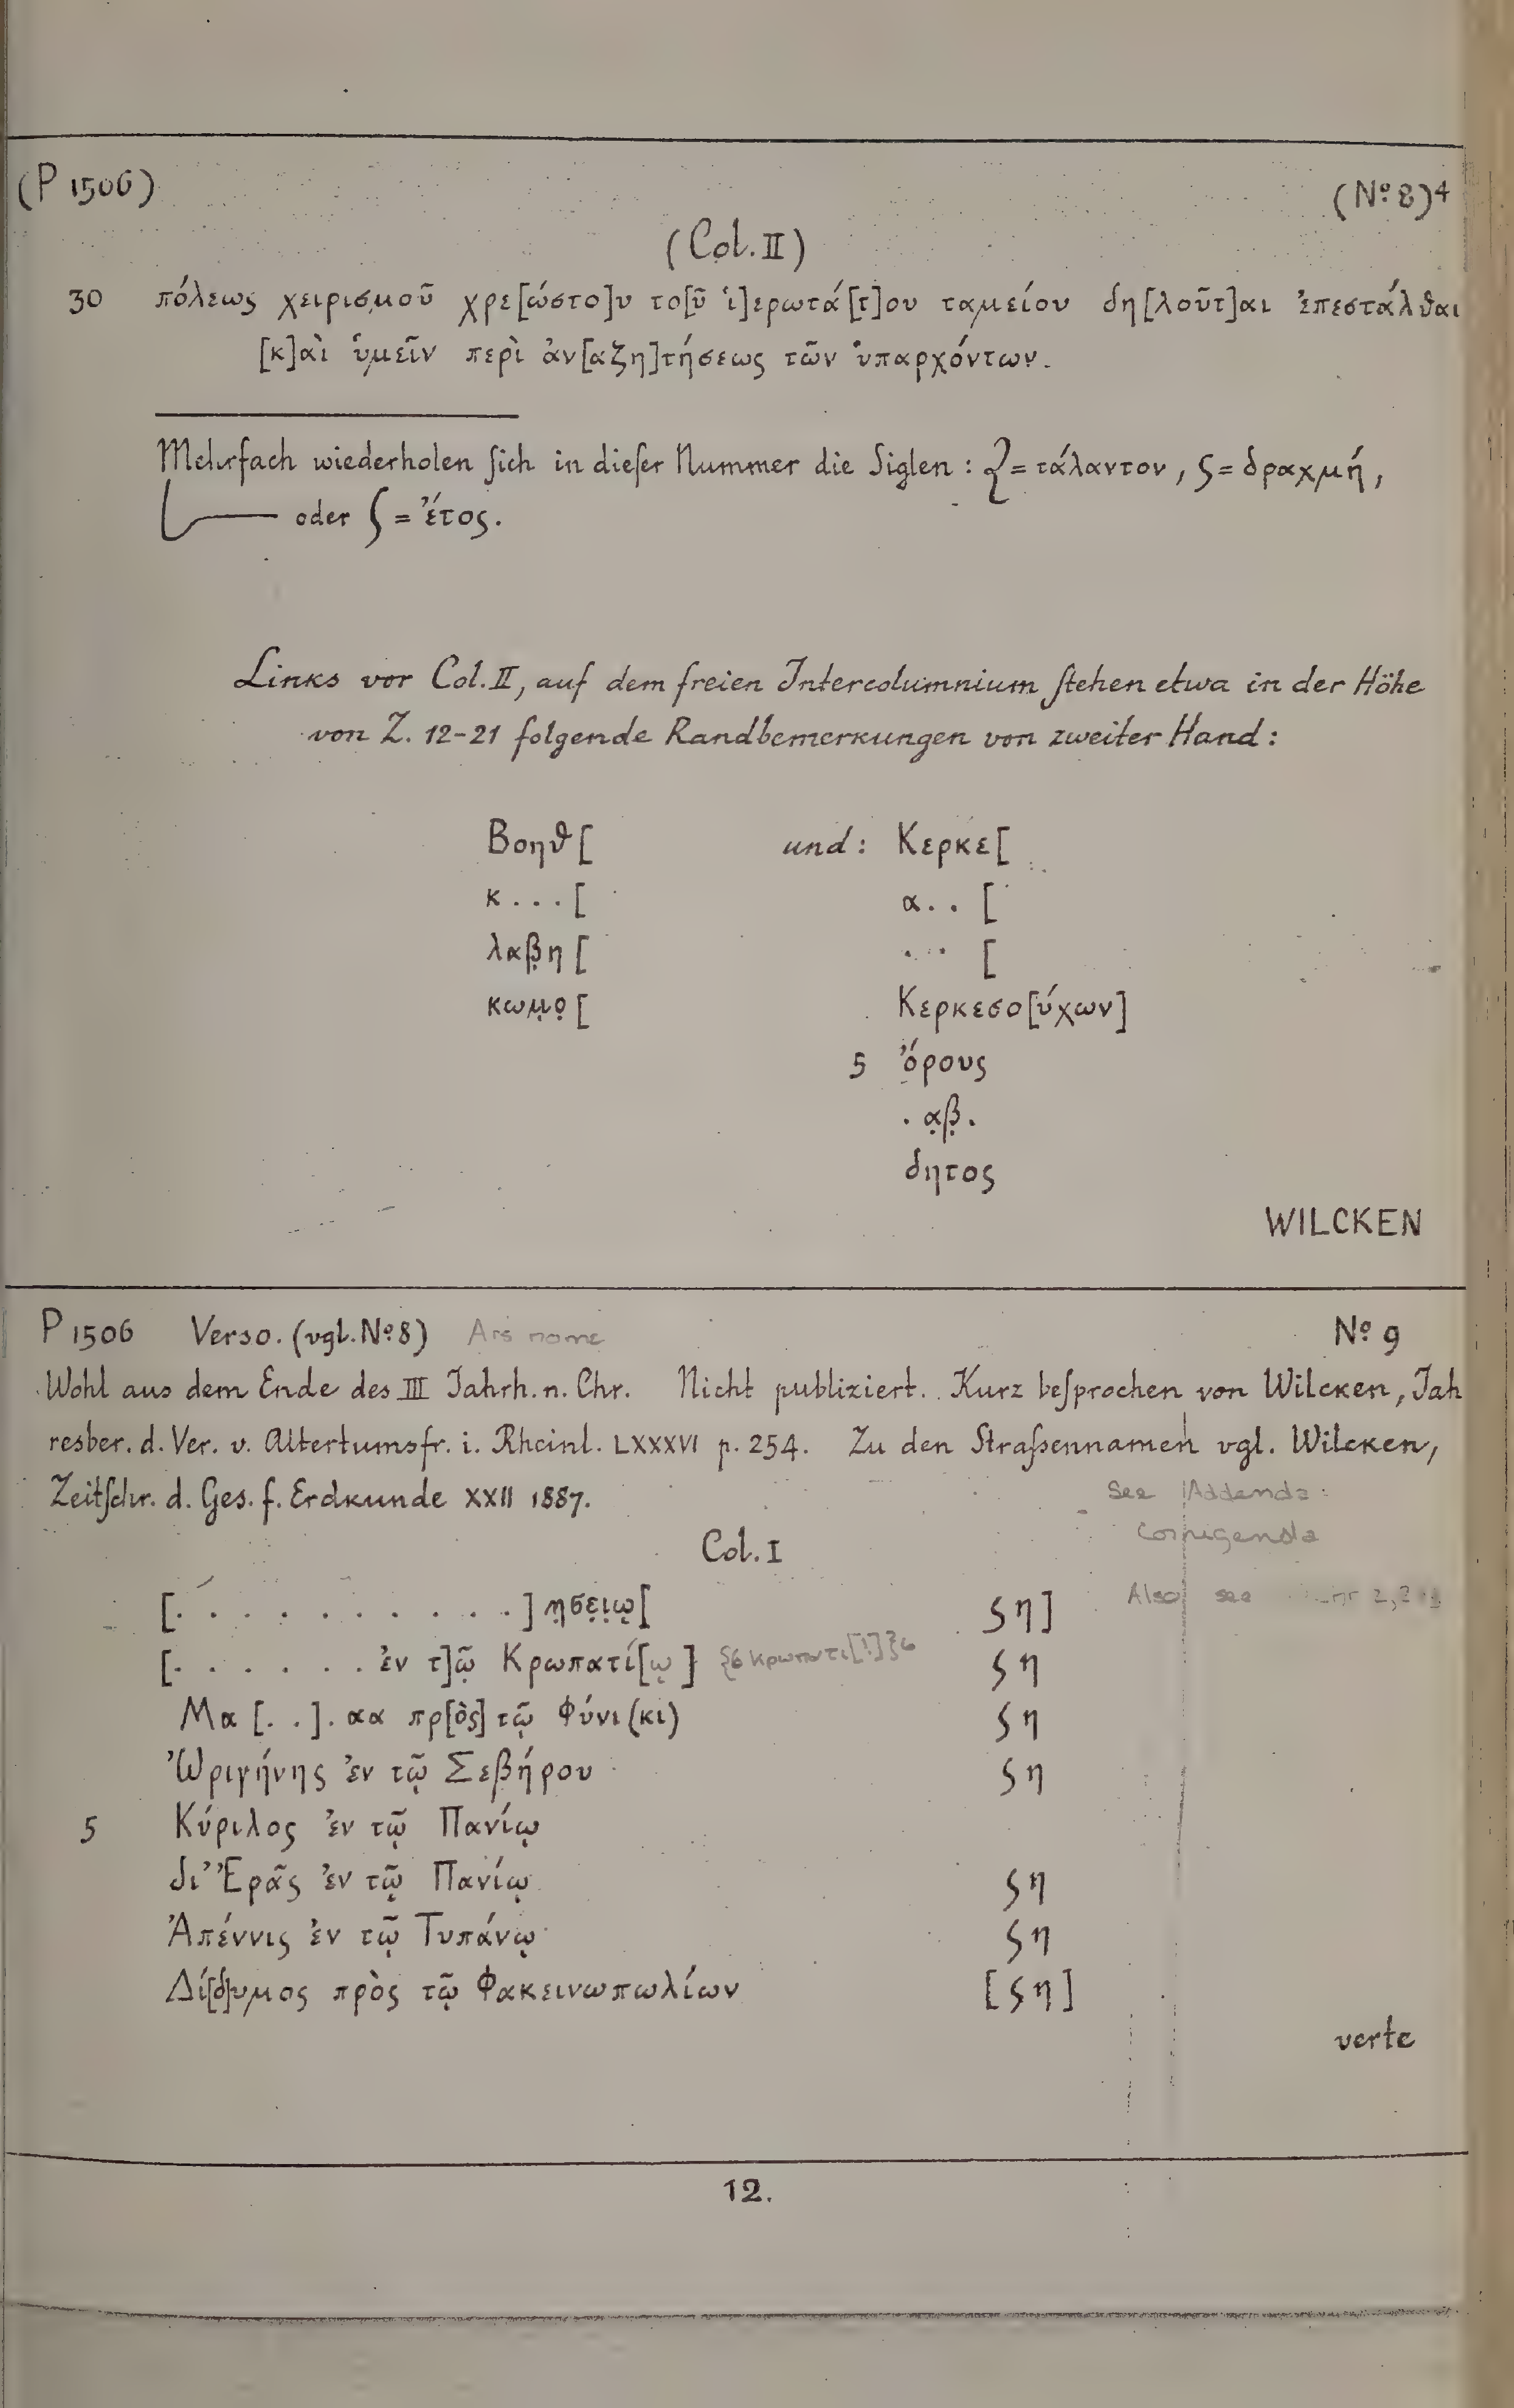 (P 1506) (Nº 8)4
(Col. II)
30 πόλεως χειρισμοῦ χρε[ώστο]υ το[ῦ ἱ]ερωτά[τ]ου ταμείου δη[λοῦτ]αι ἐπεστάλθαι
[κ]αὶ ὑμεῖν περὶ ἀν[αζη]τήσεως τῶν ὑπαρχόντων.
Mehrfach wiederholen ſich in dieſer Nummer die Siglen: = τάλαντον, ϛ = δραχμή,
oder = ἔτος.
Links vor Col. II, auf dem freien Intercolumnium ſtehen etwa in der Höhe
von Z. 12-21 folgende Randbemerkungen von zweiter Hand:
Βοηθ[ und: Κερκε[
κ . . . [ α . . [
λαβ̣η [ . . . [
κωμ̣ο̣ [ Κερκεσο[ύχων]
5 ὄρους
. α̣β̣ .
δητος
WILCKEN
P 1506 Verso. (vgl. Nº 8) Ars nome Nº 9
Wohl aus dem Ende des III Jahrh. n. Chr. Nicht publiziert. Kurz beſprochen von Wilcken, Jah
resber. d. Ver. v. Altertumsfr. i. Rheinl. LXXXVI p. 254. Zu den Straſsennamen vgl. Wilcken,
Zeitſchr. d. Ges. f. Erdkunde XXII 1887.
See Addenda
Corrigenda
Col. I
[. . . . . . . . . . .] η̣σε̣ι̣ω̣[ ϛ η] Also see
[. . . . . . . ἐν τ]ῷ Κρωπατί[ῳ] ϛ η
Μα [. .] . αα πρ[ὸς] τῷ Φύνι(κι) ϛ η
Ὠριγήνης ἐν τῷ Σεβήρου ϛ η
5 Κύριλος ἐν τῷ Πανίῳ
δι’ Ἐρᾶς ἐν τῷ Πανίῳ ϛ η
Ἀπέννις ἐν τῷ Τυπάνῳ ϛ η
Δί[δ]υμος πρὸς τῷ Φακεινωπωλίων [ϛ η]
verte
12.